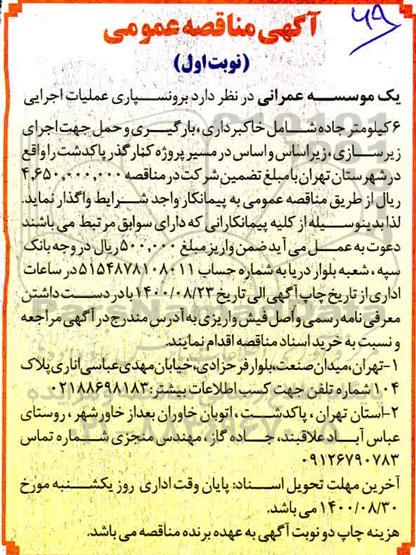 ۴۹
آگهی مناقصه عمومی
(نوبت اول)
یک موسسه عمرانی در نظر دارد برونسپاری عملیات اجرایی
۶ کیلومتر جاده شامل خاکبرداری، بارگیری و حمل جهت اجرای
زیرسازی، زیراساس و اساس در مسیر پروژه کنارگذر پاکدشت را واقع
در شهرستان تهران با مبلغ تضمین شرکت در مناقصه ۴,۶۵۰,۰۰۰,۰۰۰
ریال از طریق مناقصه عمومی به پیمانکار واجد شرایط واگذار نماید.
لذا بدینوسیله از کلیه پیمانکارانی که دارای سوابق مرتبط می باشند
دعوت به عمل می آید ضمن واریز مبلغ ۵۰۰,۰۰۰ ریال در وجه بانک
سپه، شعبه بلوار دریا به شماره حساب ۵۱۵۴۸۷۸۱۰۸۰۱۱ در ساعات
اداری از تاریخ چاپ آگهی الی تاریخ ۱۴۰۰/۰۸/۲۳ با در دست داشتن
معرفی نامه رسمی و اصل فیش واریزی به آدرس مندرج در آگهی مراجعه
و نسبت به خرید اسناد مناقصه اقدام نمایند.
۱-تهران، میدان صنعت، بلوار فرحزادی، خیابان مهدی عباسی اناری پلاک
۱۰۴ شماره تلفن جهت کسب اطلاعات بیشتر: ۰۲۱۸۸۶۹۸۱۸۳
۲-استان تهران، پاکدشت، اتوبان خاوران بعد از خاورشهر، روستای
عباس آباد علاقبند، جاده گاز، مهندس منجزی شماره تماس
۰۹۱۲۶۷۹۰۷۸۳
آخرین مهلت تحویل اسناد: پایان وقت اداری روز یکشنبه مورخ
۱۴۰۰/۰۸/۳۰ می باشد.
هزینه چاپ دو نوبت آگهی به عهده برنده مناقصه می باشد.